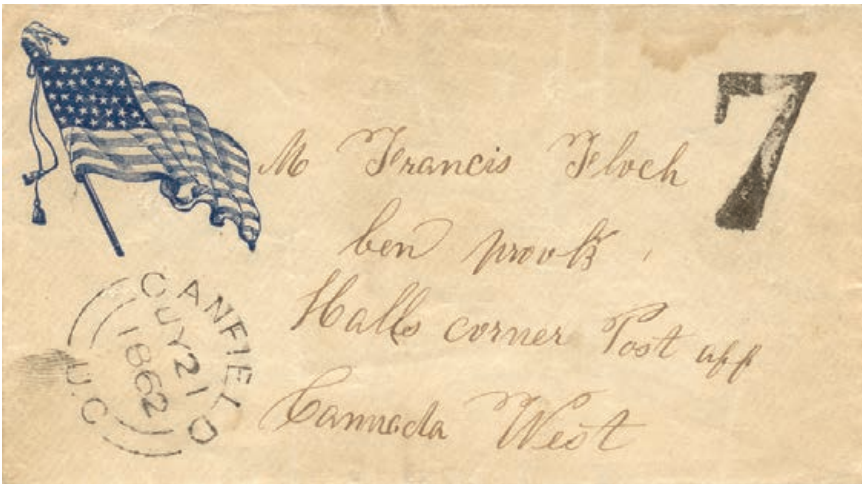 7
M Francis Floch
ben
Halls corner Post off
Cannada West
CANFIELD
JY 21
1862
U.C